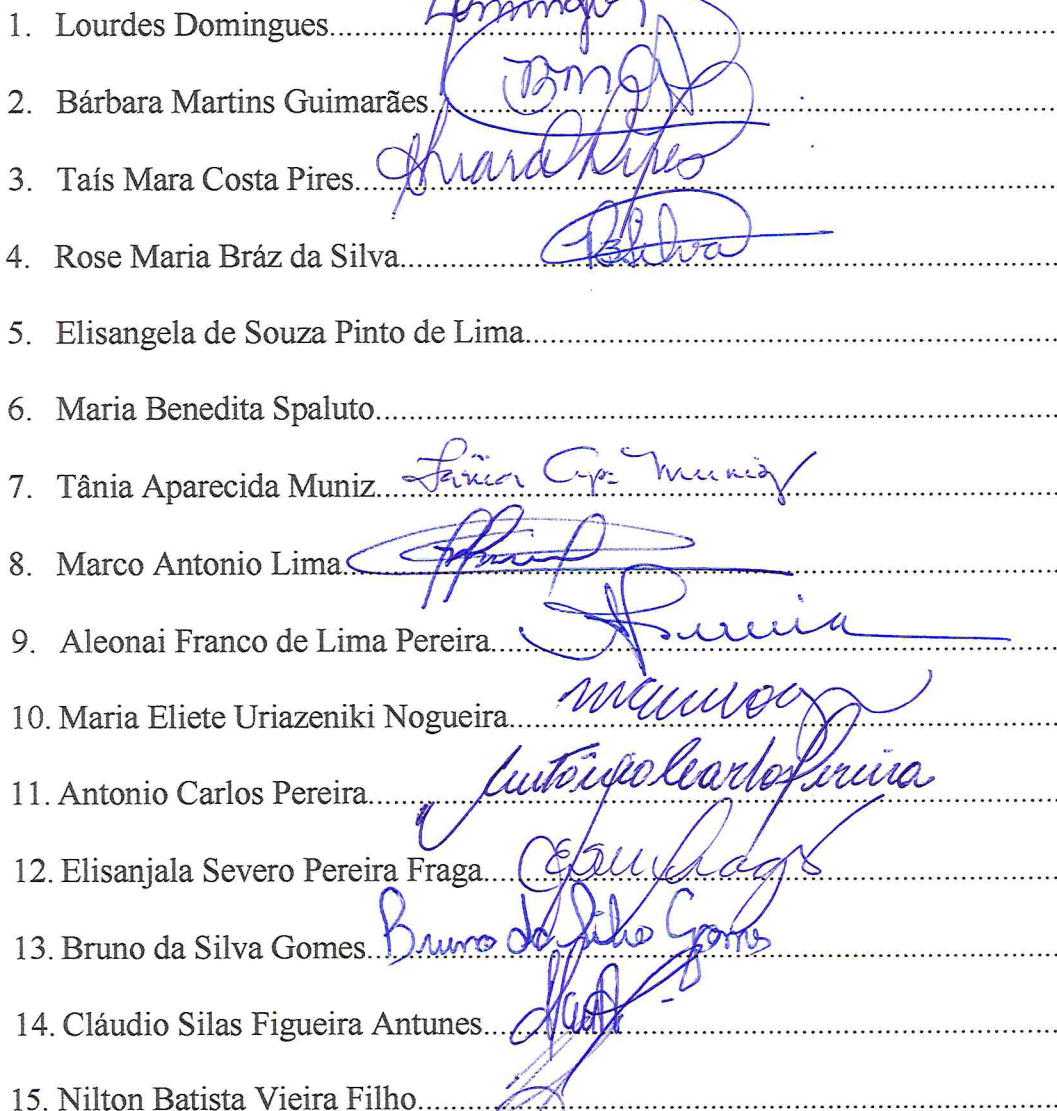 1. Lourdes Domingues.......... Domingues
2. Bárbara Martins Guimarães.......... BMG
3. Taís Mara Costa Pires.......... Pires
4. Rose Maria Bráz da Silva.......... RSilva
5. Elisangela de Souza Pinto de Lima..........
6. Maria Benedita Spaluto..........
7. Tânia Aparecida Muniz.......... Tânia Ap. Muniz
8. Marco Antonio Lima..........
9. Aleonai Franco de Lima Pereira.......... Pereira
10. Maria Eliete Uriazeniki Nogueira..........
11. Antonio Carlos Pereira.......... Antônio Carlos Pereira
12. Elisanjala Severo Pereira Fraga.......... Fraga
13. Bruno da Silva Gomes.......... Bruno da Silva Gomes
14. Cláudio Silas Figueira Antunes..........
15. Nilton Batista Vieira Filho..........